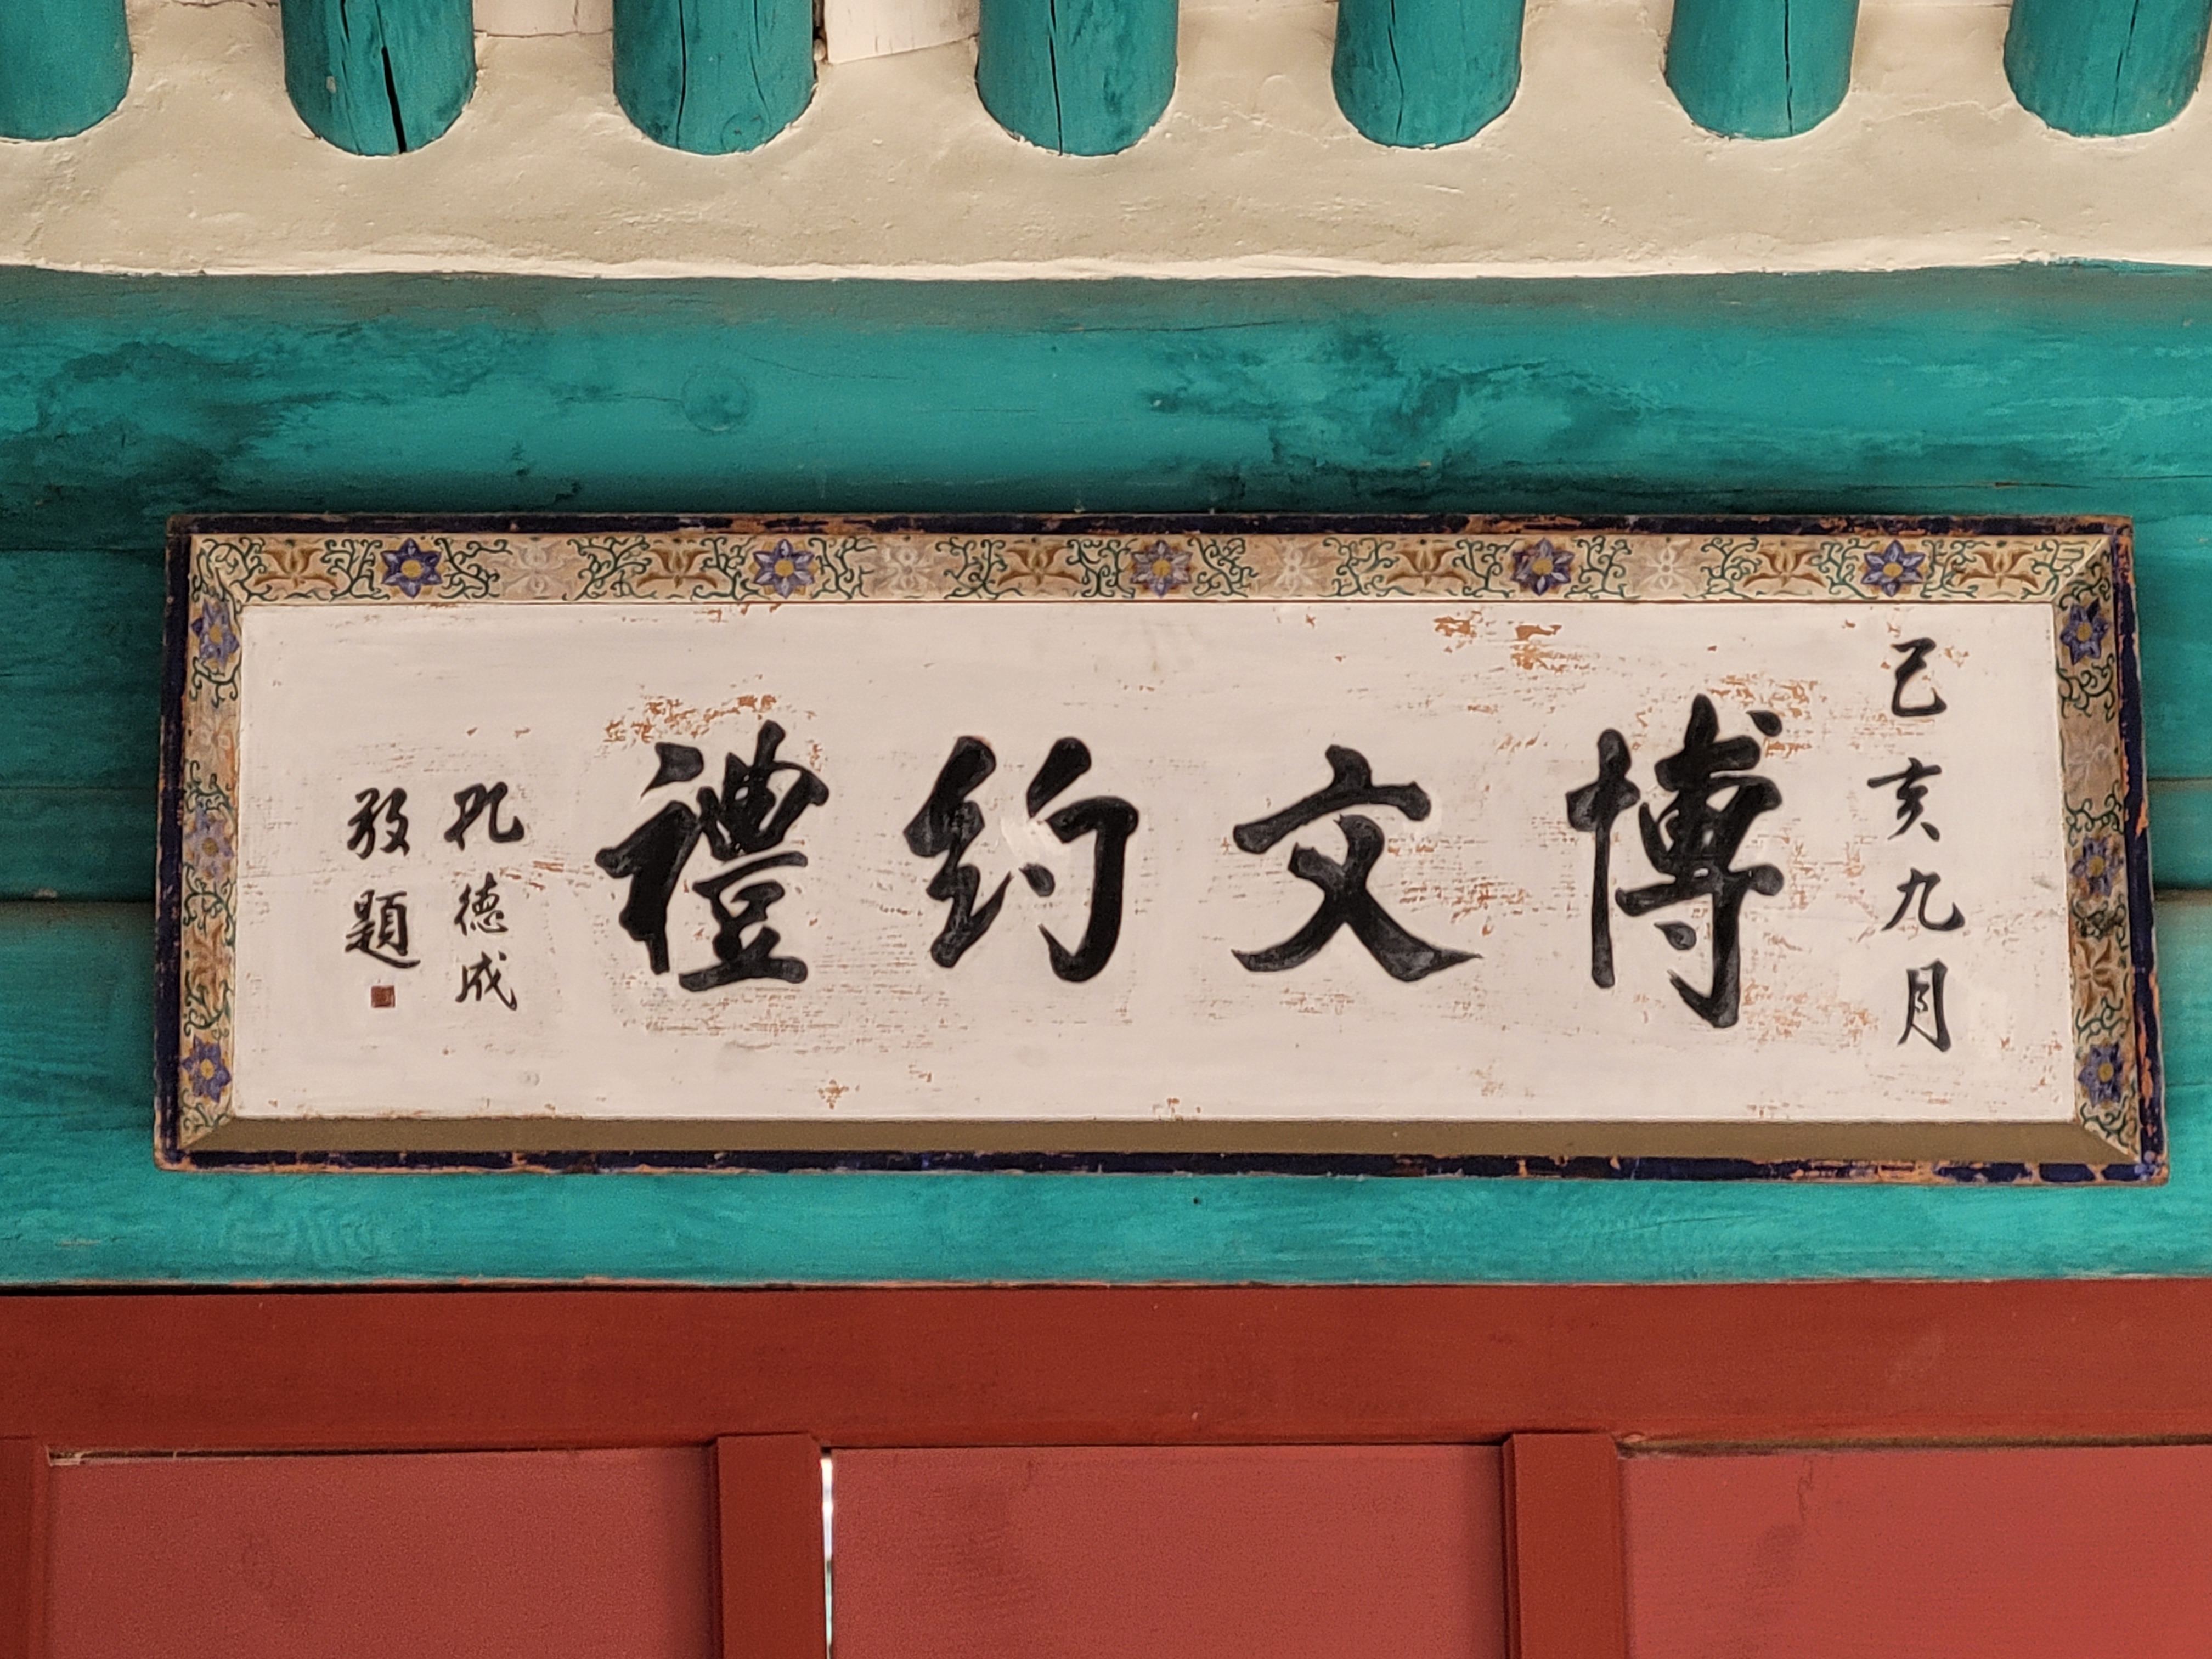 己亥九月
博文約禮
孔德成
敬題